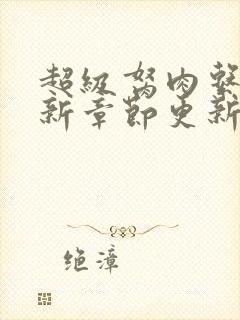 超级驽肉系
新章节更新
绝漳